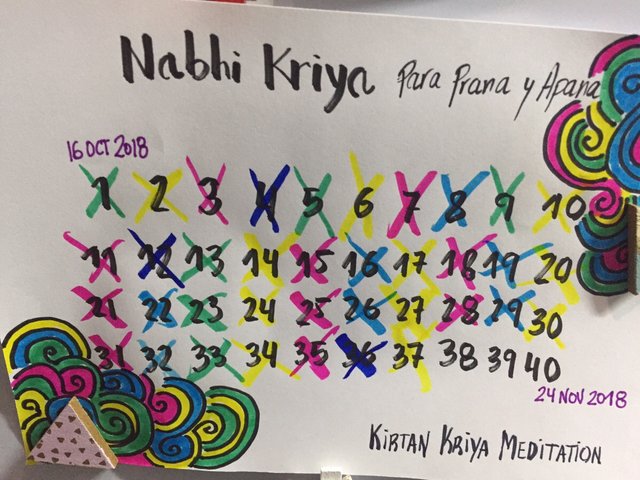 Nabhi Kriya Para Prana y Apana
16 OCT 2018
1 2 3 4 5 6 7 8 9 10
11 12 13 14 15 16 17 18 19 20
21 22 23 24 25 26 27 28 29 30
31 32 33 34 35 36 37 38 39 40
24 NOV 2018
KIRTAN KRIYA MEDITATION